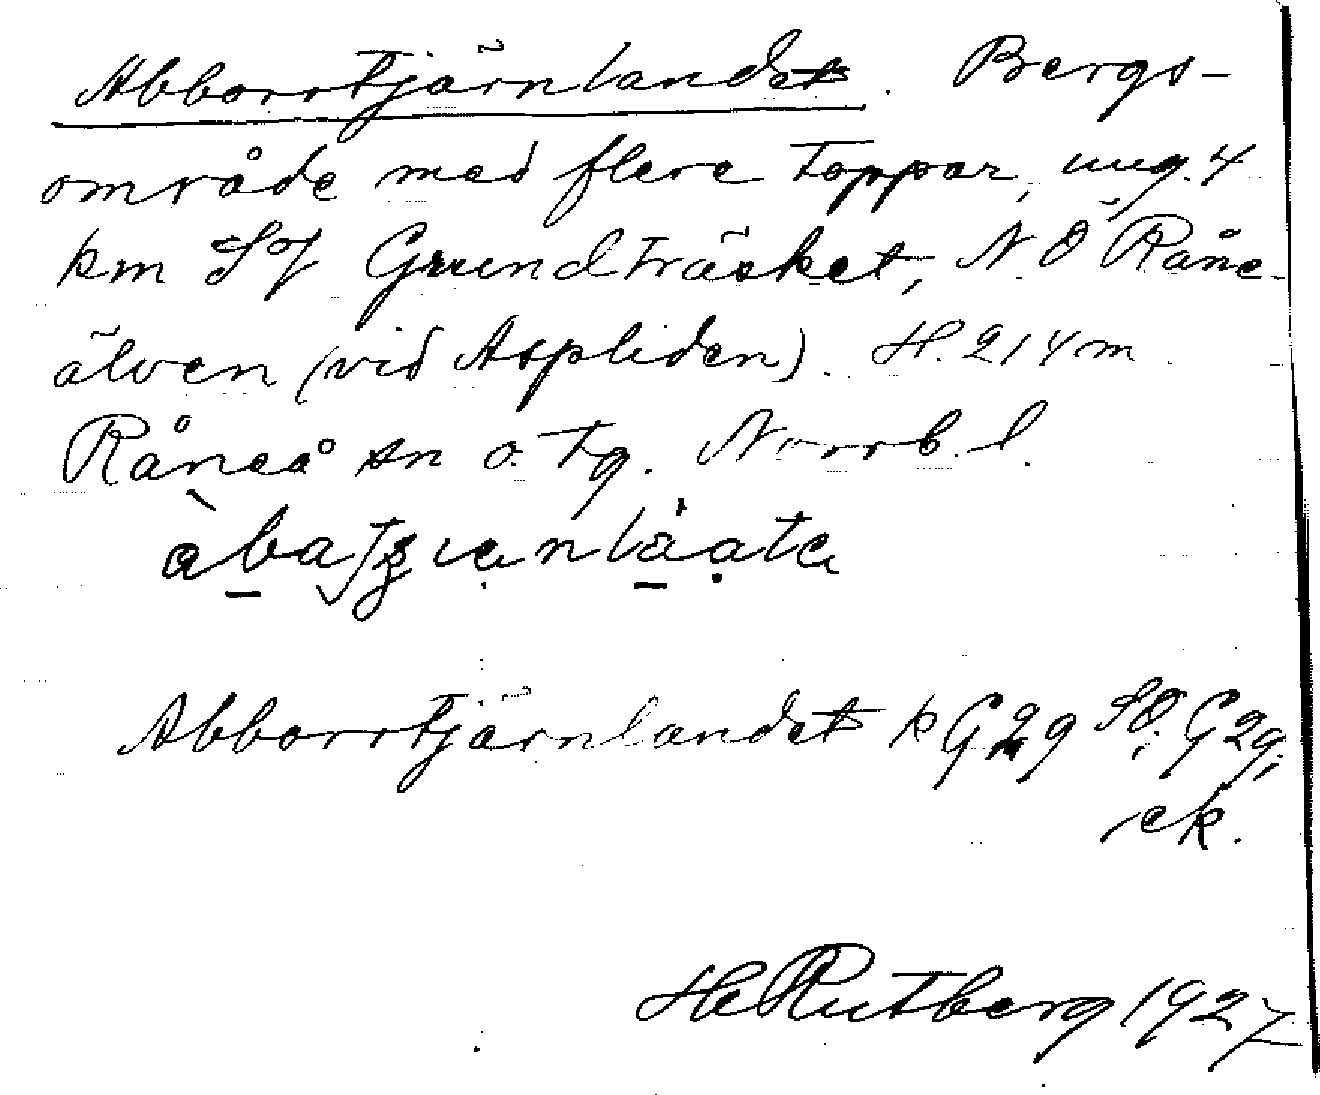 Abborrtjärnlandet. Bergs-
område med flere toppar, ung. 4
km S of Grundträsket, N.Ö Råne-
älven (vid Aspliden). H. 214 m.
Råneå sn o. tg. Norrb. l.
Abborrtjärnlandet k G 29 SO; G 29;
ek.
HRutberg 1927